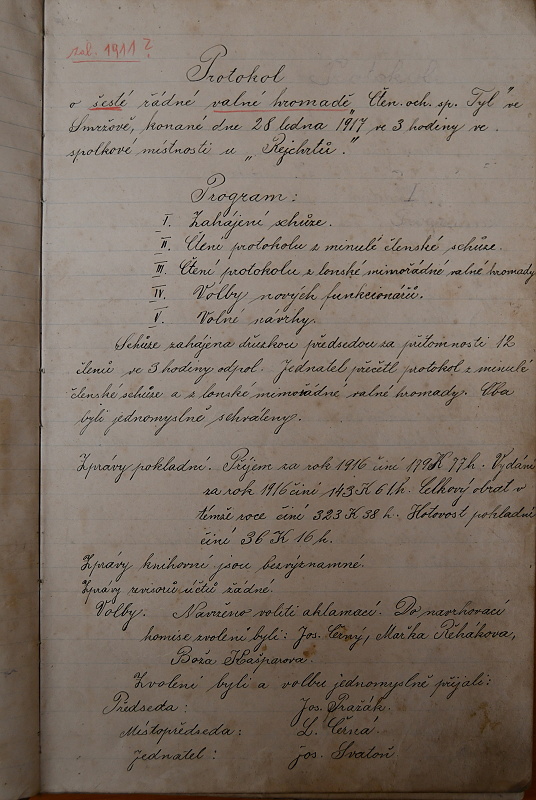 zal. 1911?
Protokol
o šesté řádné valné hromadě „Čten. och. sp. Tyl" ve
Smržově, konané dne 28 ledna 1917 ve 3 hodiny ve
spolkové místnosti u „Rejchrtů."
Program:
I. Zahájení schůze.
II. Čtení protokolu z minulé členské schůze.
III. Čtení protokolu z lonské mimořádné valné hromady
IV. Volby nových funkcionářů.
V. Volné návrhy.
Schůze zahájena předsedou za přítomnosti 12
členů ve 3 hodiny odpol. Jednatel přečetl protokol z minulé
členské schůze a z lonské mimořádné valné hromady. Oba
byli jednomyslně schváleny.
Zprávy pokladní. Příjem za rok 1916 činí 179 K 77 h. Vydání
za rok 1916 činí 143 K 61 h. Celkový obrat v
témže roce činí 323 K 38 h. Hotovost pokladní
činí 36 K 16 h.
Zprávy knihovní jsou bezvýznamné.
Zprávy revisorů účtů žádné.
Volby. Navrženo voliti aklamací. Do navrhovací
komise zvoleni byli: Jos. Červy, Mařka Řehákova,
Boža Kašparova.
Zvoleni byli a volbu jednomyslně přijali:
Předseda: Jos. Pražák.
Místopředseda: L. Černá.
Jednatel: Jos. Svatoň